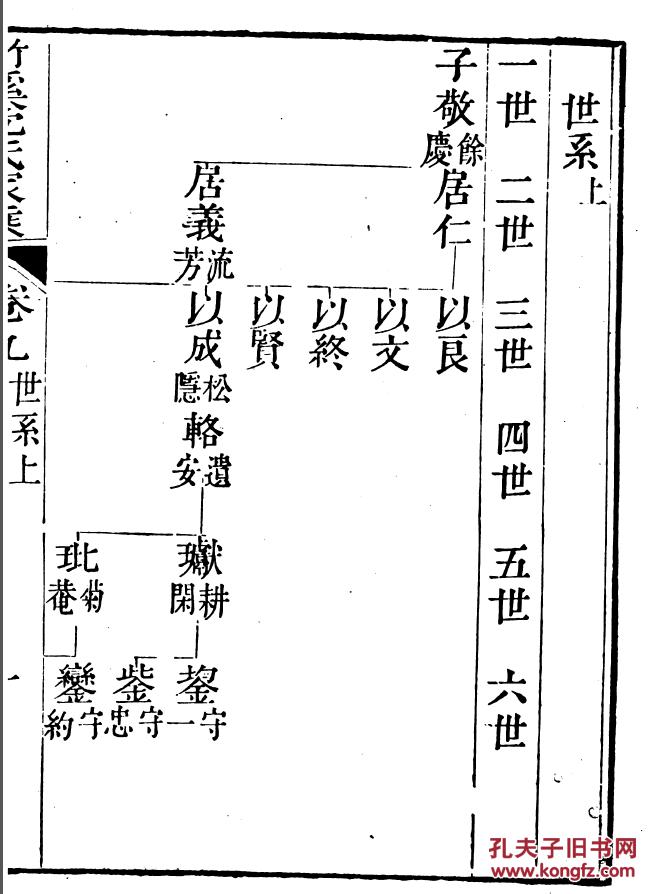 世系上
一世 二世 三世 四世 五世 六世
子敬 餘慶 居仁 以艮
以文
以終
以賢
居義 流芳 以成 松隱 輅 遺安
瓛 耕閑 守一
鈭 守忠
玭 菊菴 鑾 守約
卷九 世系上 一
孔夫子旧书网
www.kongfz.com